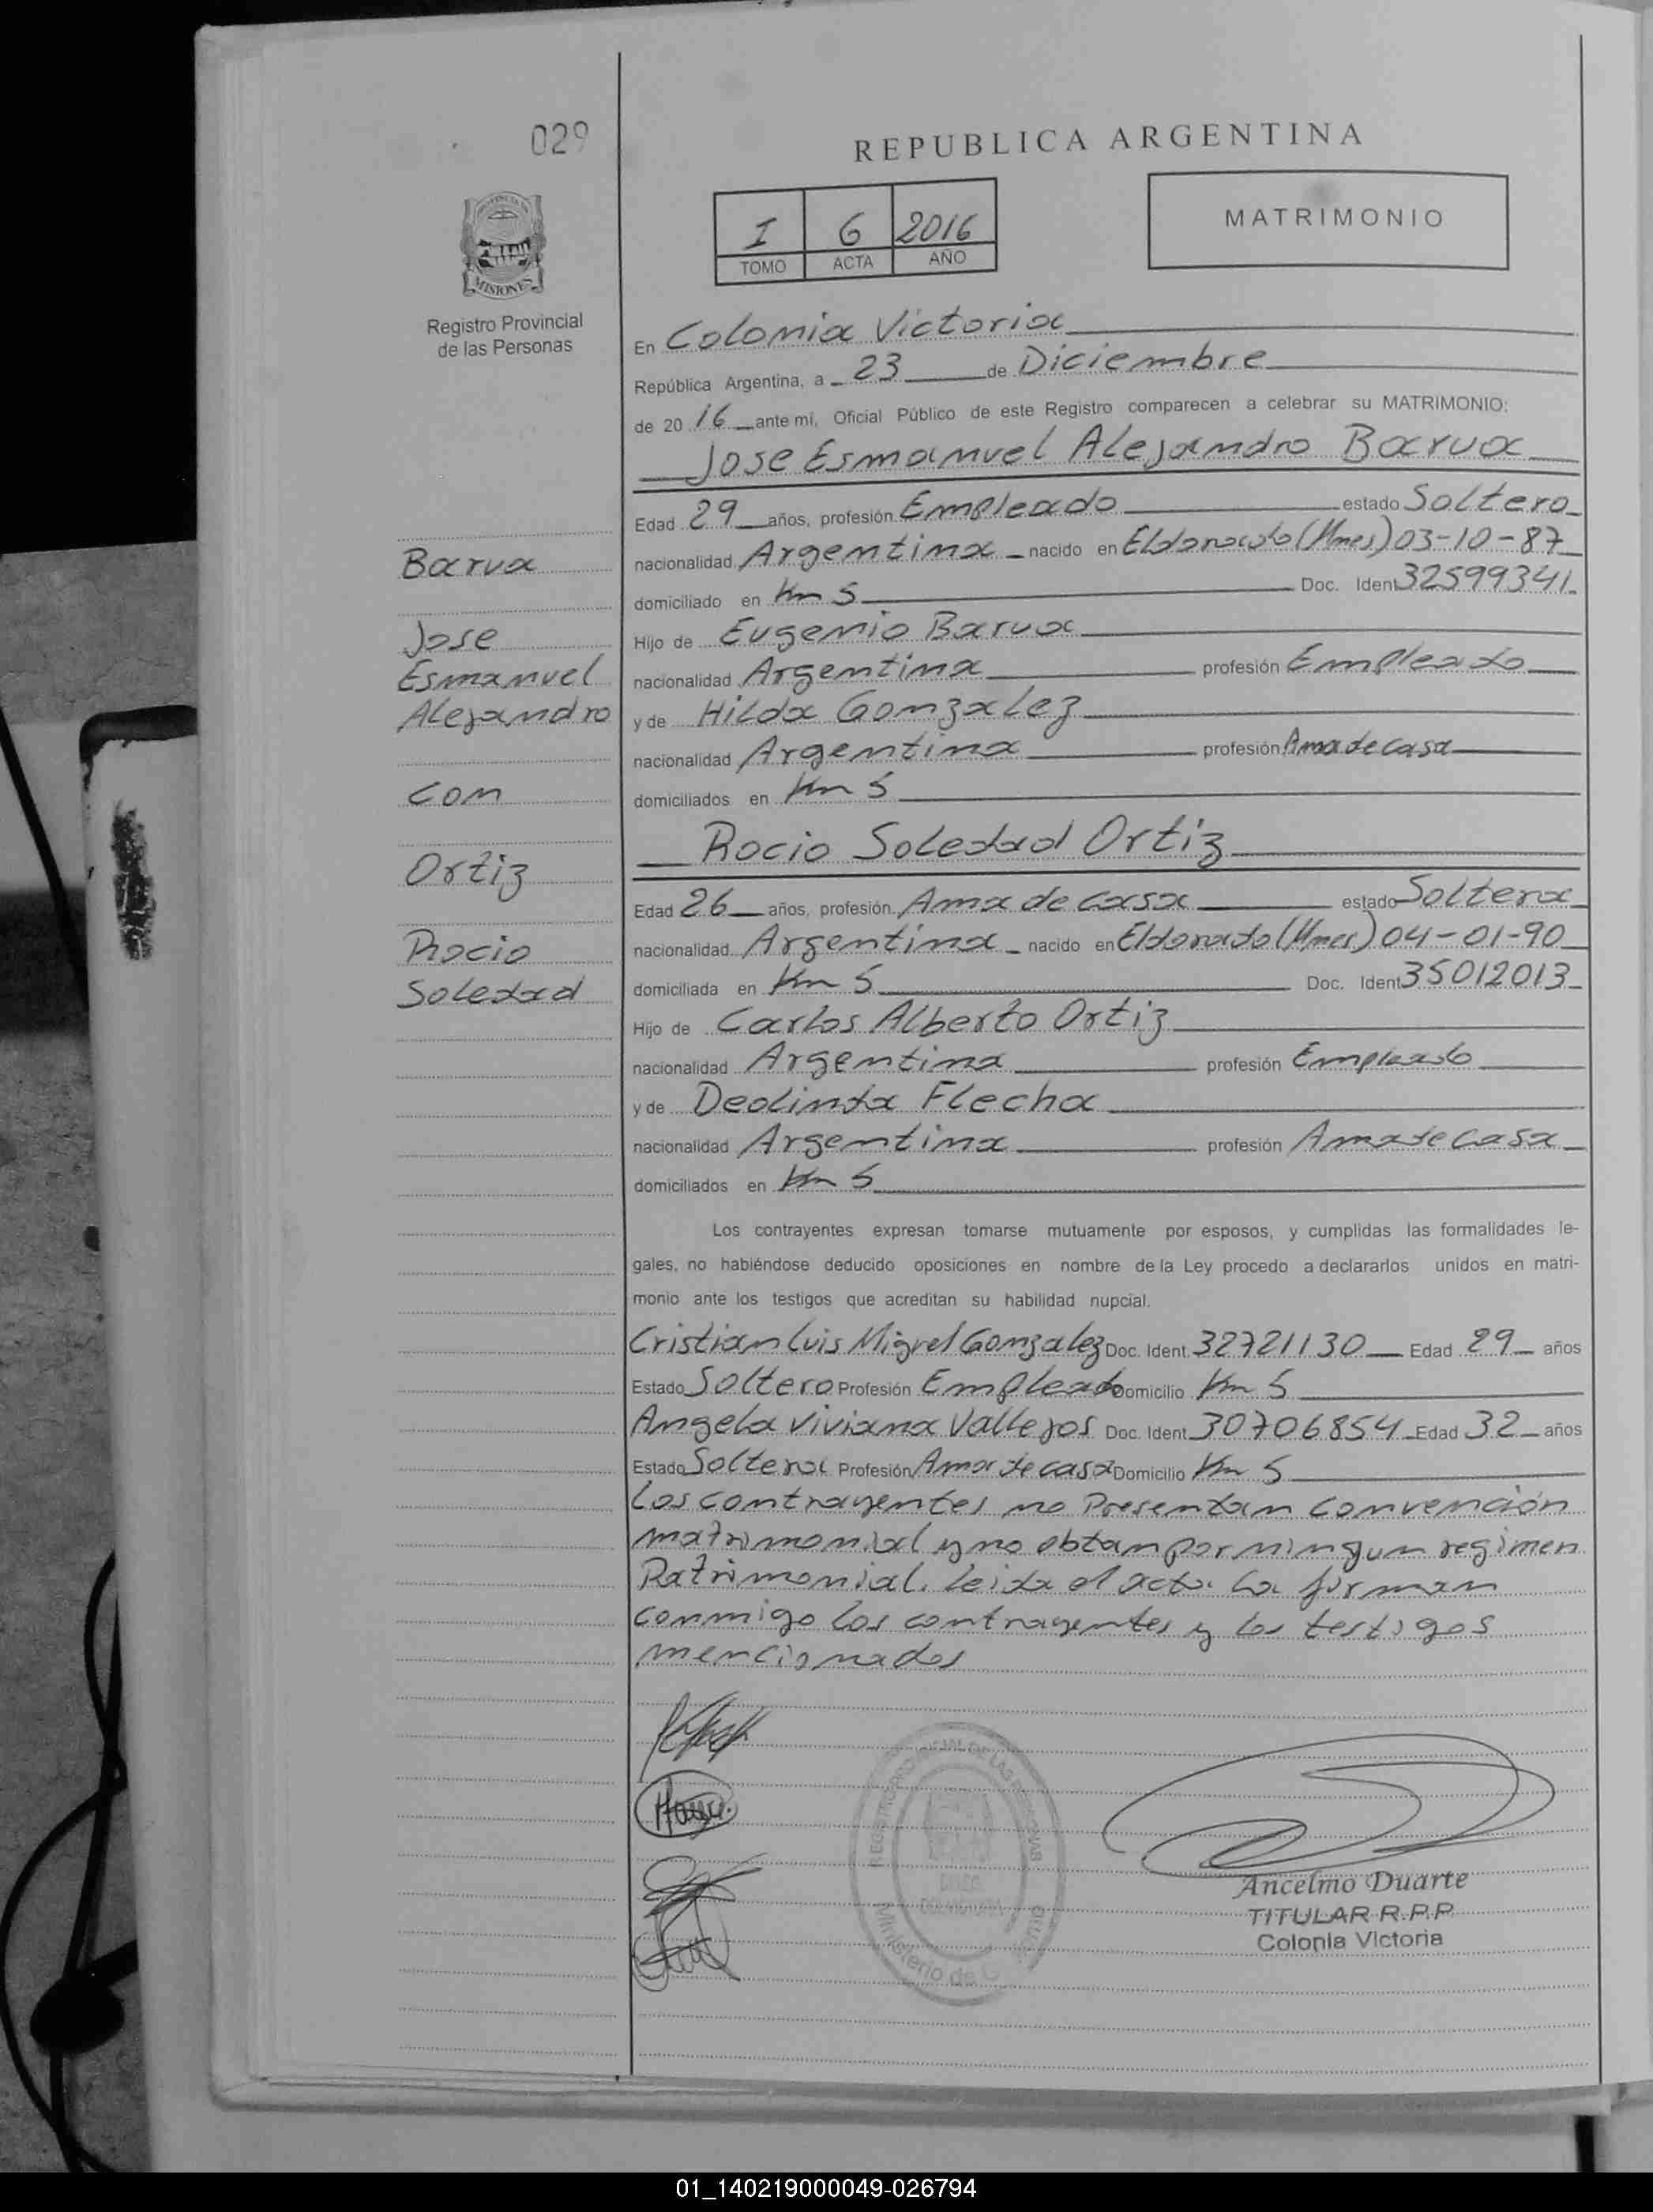 029
REPUBLICA ARGENTINA
I 6 2016
TOMO ACTA AÑO
MATRIMONIO
MISIONES
Registro Provincial
de las Personas
En Colonia Victoria
República Argentina, a 23 de Diciembre
de 20 16 ante mí, Oficial Público de este Registro comparecen a celebrar su MATRIMONIO:
Jose Esmanuel Alejandro Barua
Edad 29 años, profesión Empleado estado Soltero
nacionalidad Argentina nacido en Eldorado (Mnes) 03-10-87
domiciliado en Km 5 Doc. Ident 32599341
Hijo de Eugenio Barua
nacionalidad Argentina profesión Empleado
y de Hilda Gonzalez
nacionalidad Argentina profesión Ama de casa
domiciliados en Km 5
Rocio Soledad Ortiz
Edad 26 años, profesión Ama de casa estado Soltera
nacionalidad Argentina nacido en Eldorado (Mnes) 04-01-90
domiciliada en Km 5 Doc. Ident 35012013
Hijo de Carlos Alberto Ortiz
nacionalidad Argentina profesión Empleado
y de Deolinda Flecha
nacionalidad Argentina profesión Ama de casa
domiciliados en Km 5
Barua
Jose
Esmanuel
Alejandro
Con
Ortiz
Rocio
Soledad
Los contrayentes expresan tomarse mutuamente por esposos, y cumplidas las formalidades le-
gales, no habiéndose deducido oposiciones en nombre de la Ley procedo a declararlos unidos en matri-
monio ante los testigos que acreditan su habilidad nupcial.
Cristian Luis Miguel Gonzalez Doc. Ident. 32721130 Edad 29 años
Estado Soltero Profesión Empleado Domicilio Km 5
Angela Viviana Vallejos Doc. Ident. 30706854 Edad 32 años
Estado Soltera Profesión Ama de casa Domicilio Km 5
Los contrayentes no Presentan convención
matrimonial y no obtan por ningun regimen
Patrimonial. Leida el acta la firman
conmigo los contrayentes y los testigos
mencionados
Ancelmo Duarte
TITULAR R.P.P.
Colonia Victoria
01_140219000049-026794